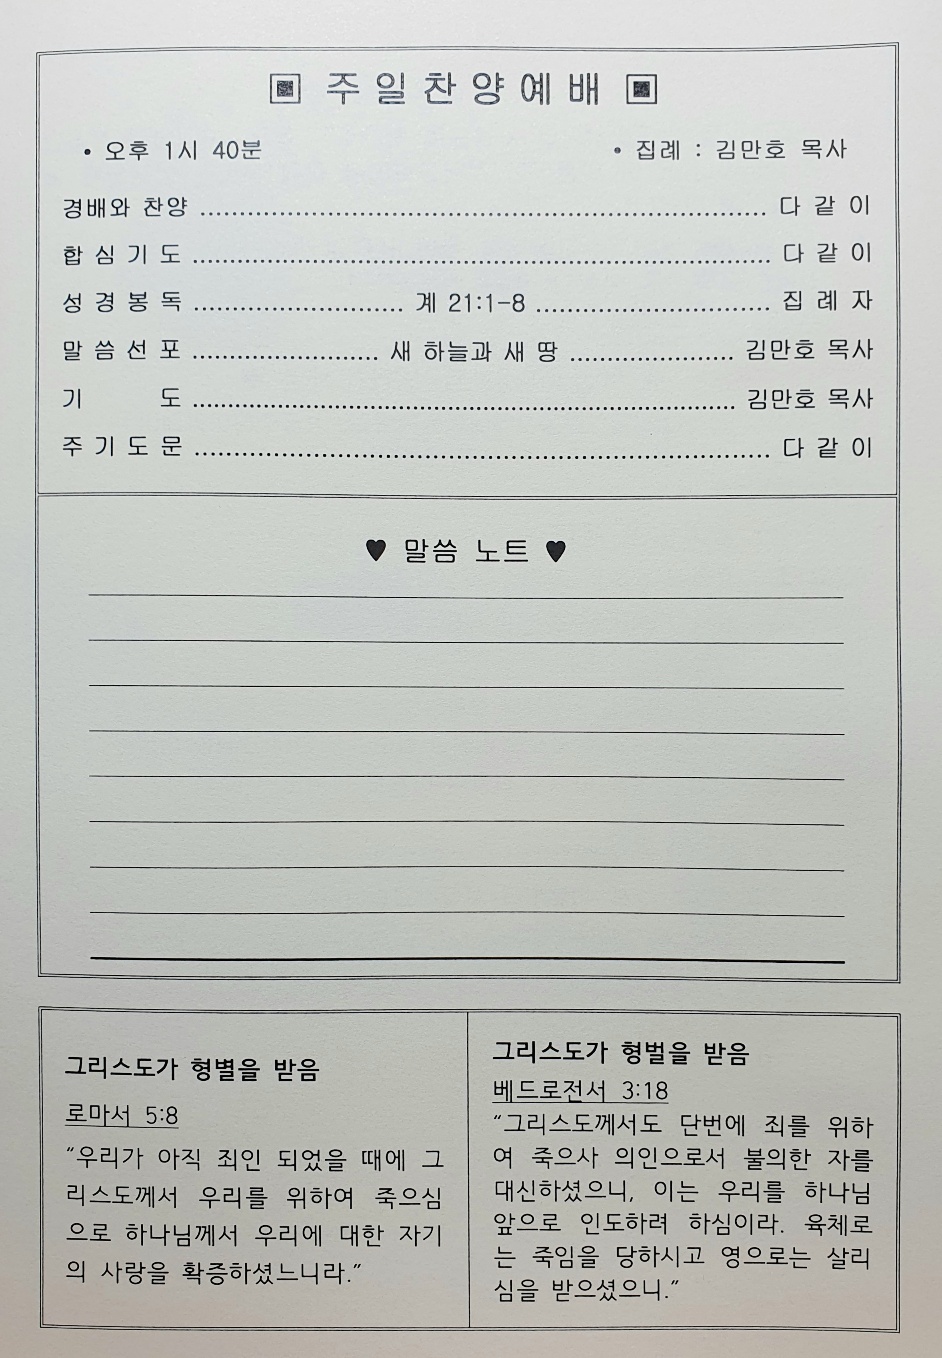 ▣ 주일찬양예배 ▣
• 오후 1시 40분 • 집례 : 김만호 목사
경배와 찬양 ........................................ 다 같 이
합 심 기 도 ........................................ 다 같 이
성 경 봉 독 .................... 계 21:1-8 .................... 집 례 자
말 씀 선 포 .................... 새 하늘과 새 땅 .................... 김만호 목사
기 도 ........................................ 김만호 목사
주 기 도 문 ........................................ 다 같 이
♥ 말씀 노트 ♥
그리스도가 형별을 받음
로마서 5:8
“우리가 아직 죄인 되었을 때에 그
리스도께서 우리를 위하여 죽으심
으로 하나님께서 우리에 대한 자기
의 사랑을 확증하셨느니라.”
그리스도가 형벌을 받음
베드로전서 3:18
“그리스도께서도 단번에 죄를 위하
여 죽으사 의인으로서 불의한 자를
대신하셨으니, 이는 우리를 하나님
앞으로 인도하려 하심이라. 육체로
는 죽임을 당하시고 영으로는 살리
심을 받으셨으니.”